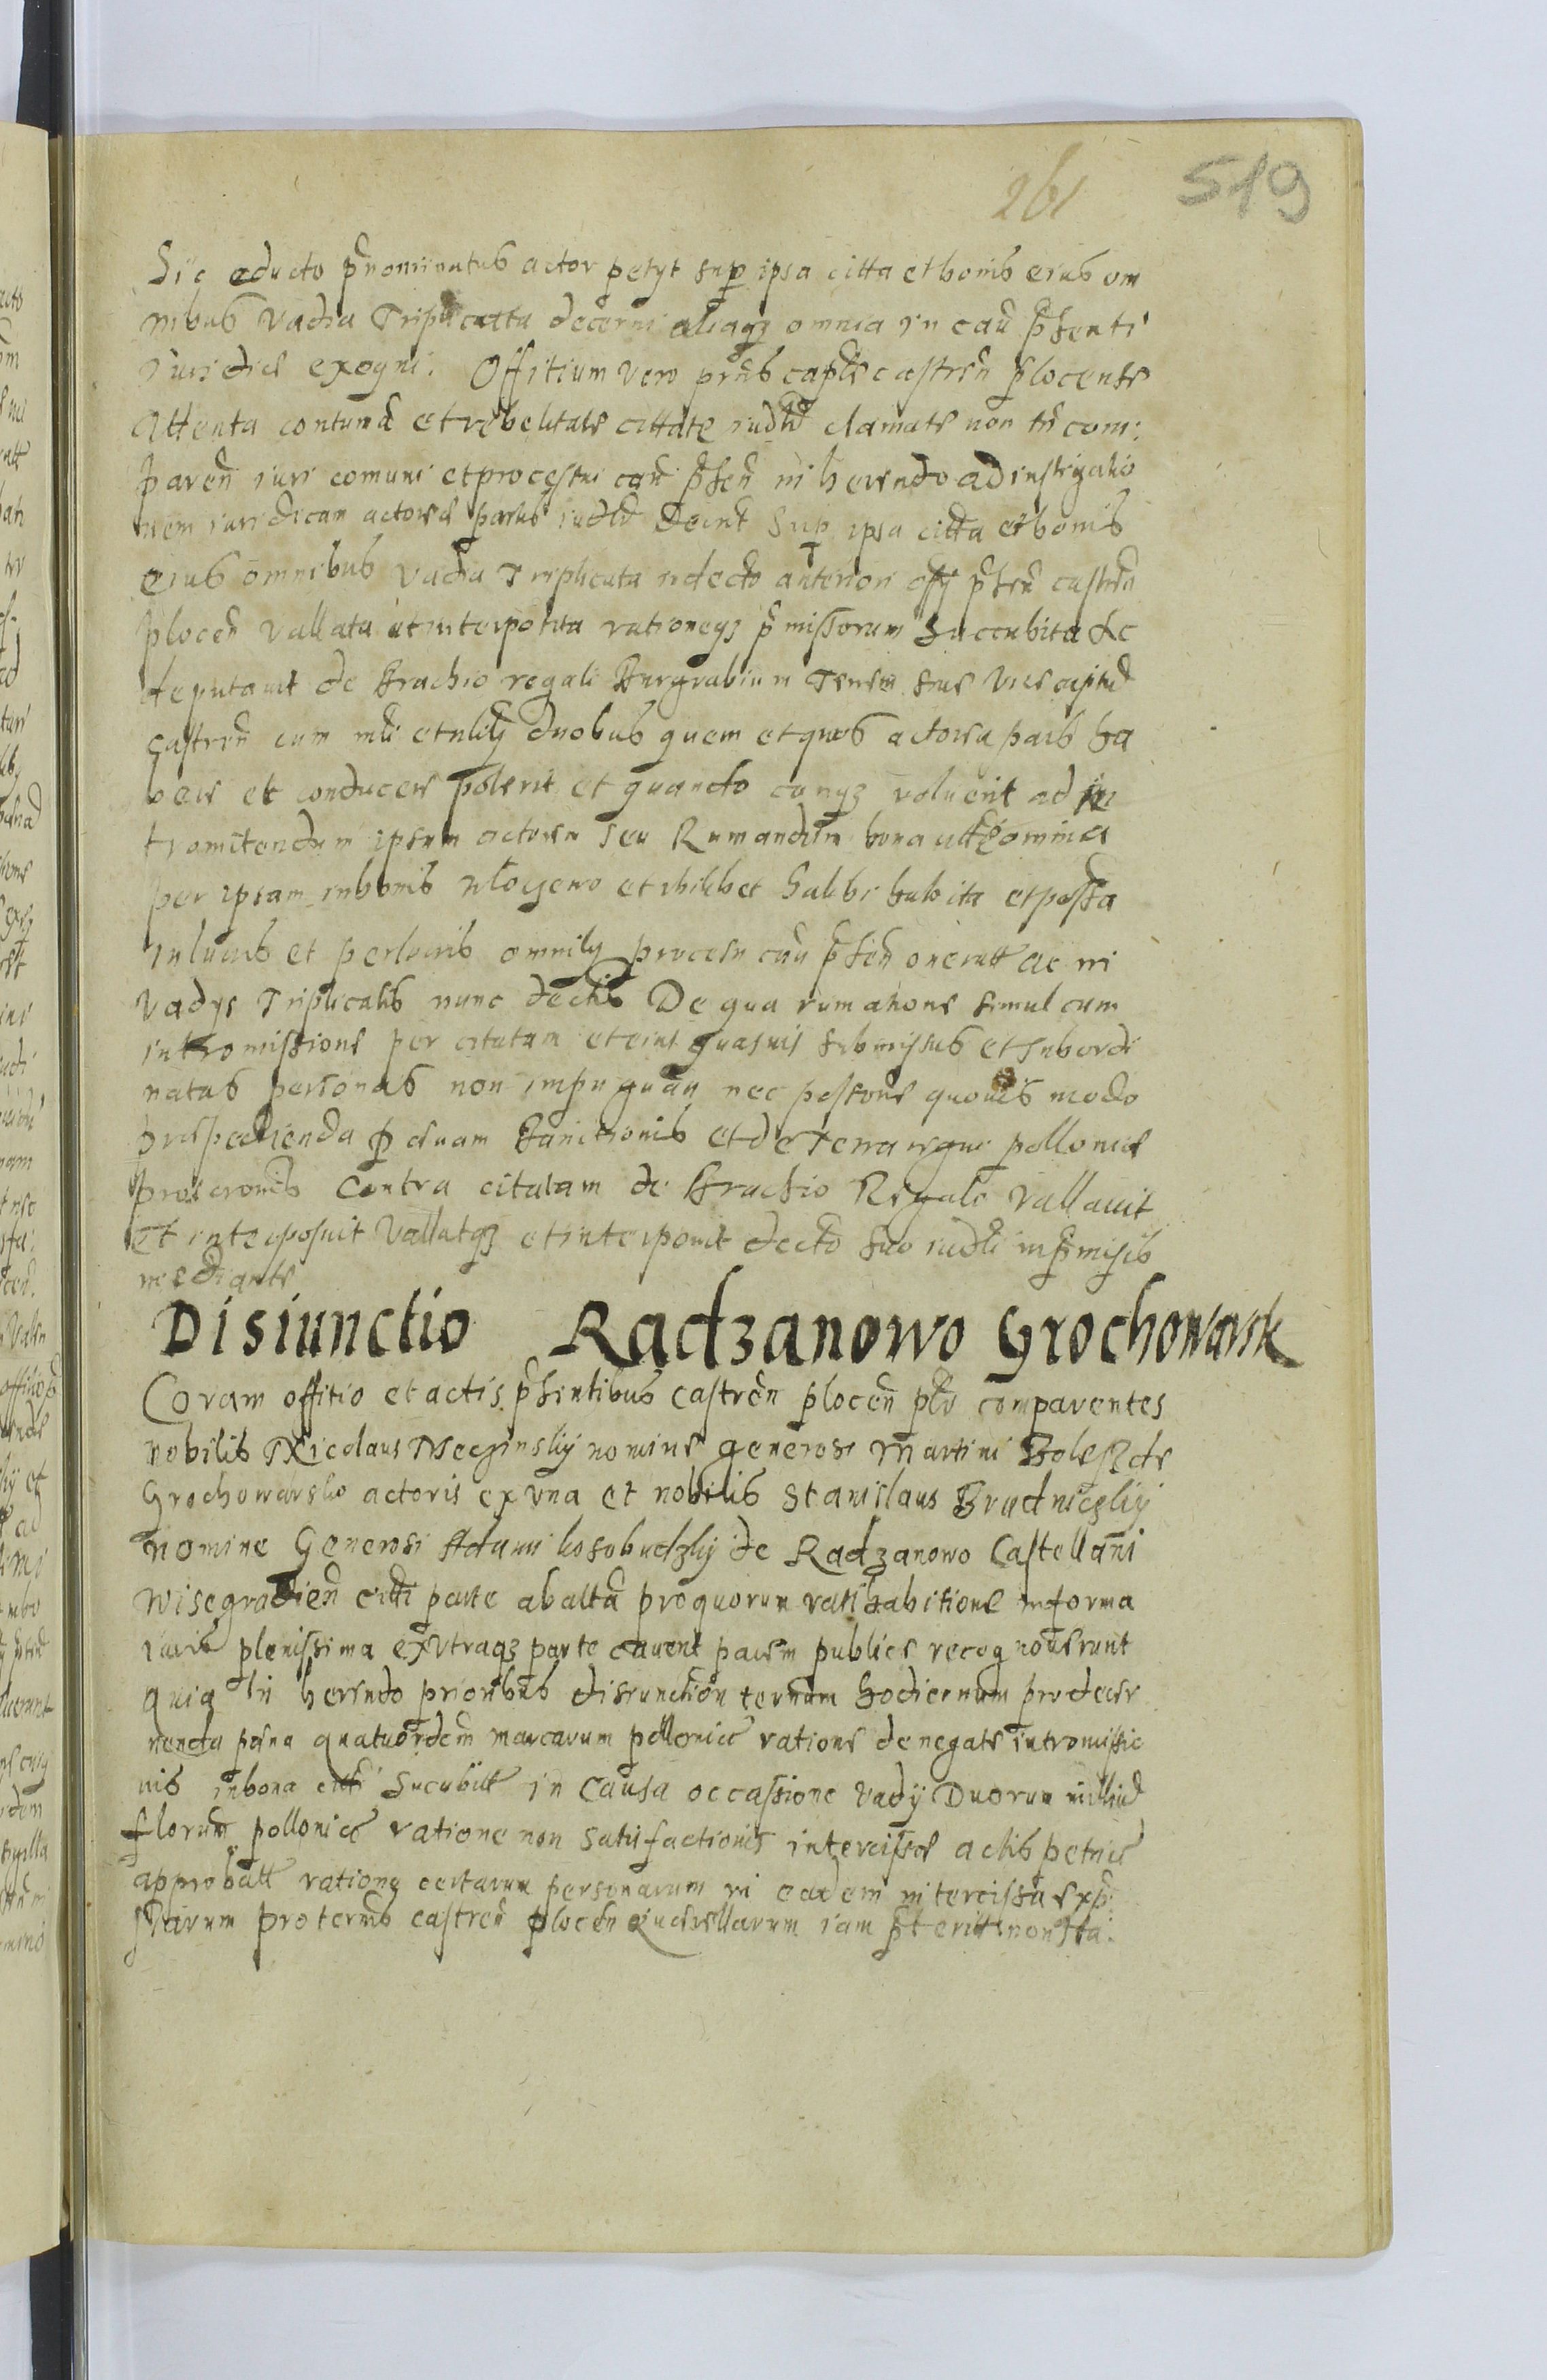 261 519
Sic educto prnominatus actor petyt sup ipsa citta et bonis eius om
nibus vadia Triplicatta decerni aliaqz omnia in cau pnsenti
iuridice exegui. Offitium vero pnns caple castren plocense
Attenta contuma et rebelitate cittate iudtr clamate non tn com:
paren iuri comuni et processui cau pnsen in herendo ad instigatio
nem iuridicam actorea partis iudtr Decint Sup ipsa citta et bonis
eius omnibus vadia Triplicata in decto anteriori offy pnsen castren
plocen vallata et interposita rationeqz premissorum Succubita &c
deputauit de Brachio regali Burgrabium seu Vice capitu
castren cum mli et nlibz duobus quem et quos actorea pars ha
bere et conducere poterit et quando cunqz voluerit ad in
tromitendum ipsum actorem seu Rumandum bona omnia
per ipsam in bonis et ibilibet habi habita et possa
In lucris et perlucris omnibz procesu cau pnsen oneratt ac in
vadys Triplicatis nunc dectis De qua rumatione simul cum
intromissione per citatam et eius quasuis submissas et Subordi
natas personas non impugnan nec pestone quouis modo
prepedienda p penam Banitionis et de Terra regni pollonice
proscrionis Contra citatam de Brachio Regale vallauit
Et interposuit vallatqz et interponit decto suo iudli in pmisis
mediante
Disiunctio Radzanowo Grochowarsk
Coram offitio et actis pnsentibus Castren plocen plr comparentes
nobilis Nicolaus Meczinskij nomine generosi Martini Bolesz de
Grochowarsko actoris ex vna et nobilis Stanislaus Brudniczkij
nomine Generosi Adami kosobudzkij de Radzanowo Castellani
Wisegradien citti parte ab altra pro quorum ratihabitione in forma
iuris plenissima ex vtraqz parte cauent parem publice recognouerunt
quia in herendo prioribus disiunction ternum hodiernum pro decer
nenda pena quatuordecem marcarum pollonice ratione denegate intromissio
nis in bona citti Sucubitt in Causa occassione vadij Duorum milliu
florum pollonice ratione non Satisfactionis intercisse actis petrice
approbatt ratione certarum personarum in eadem intercissa exp:
ssarum pro termo castren plocen querellarum iam pteritt non sta: